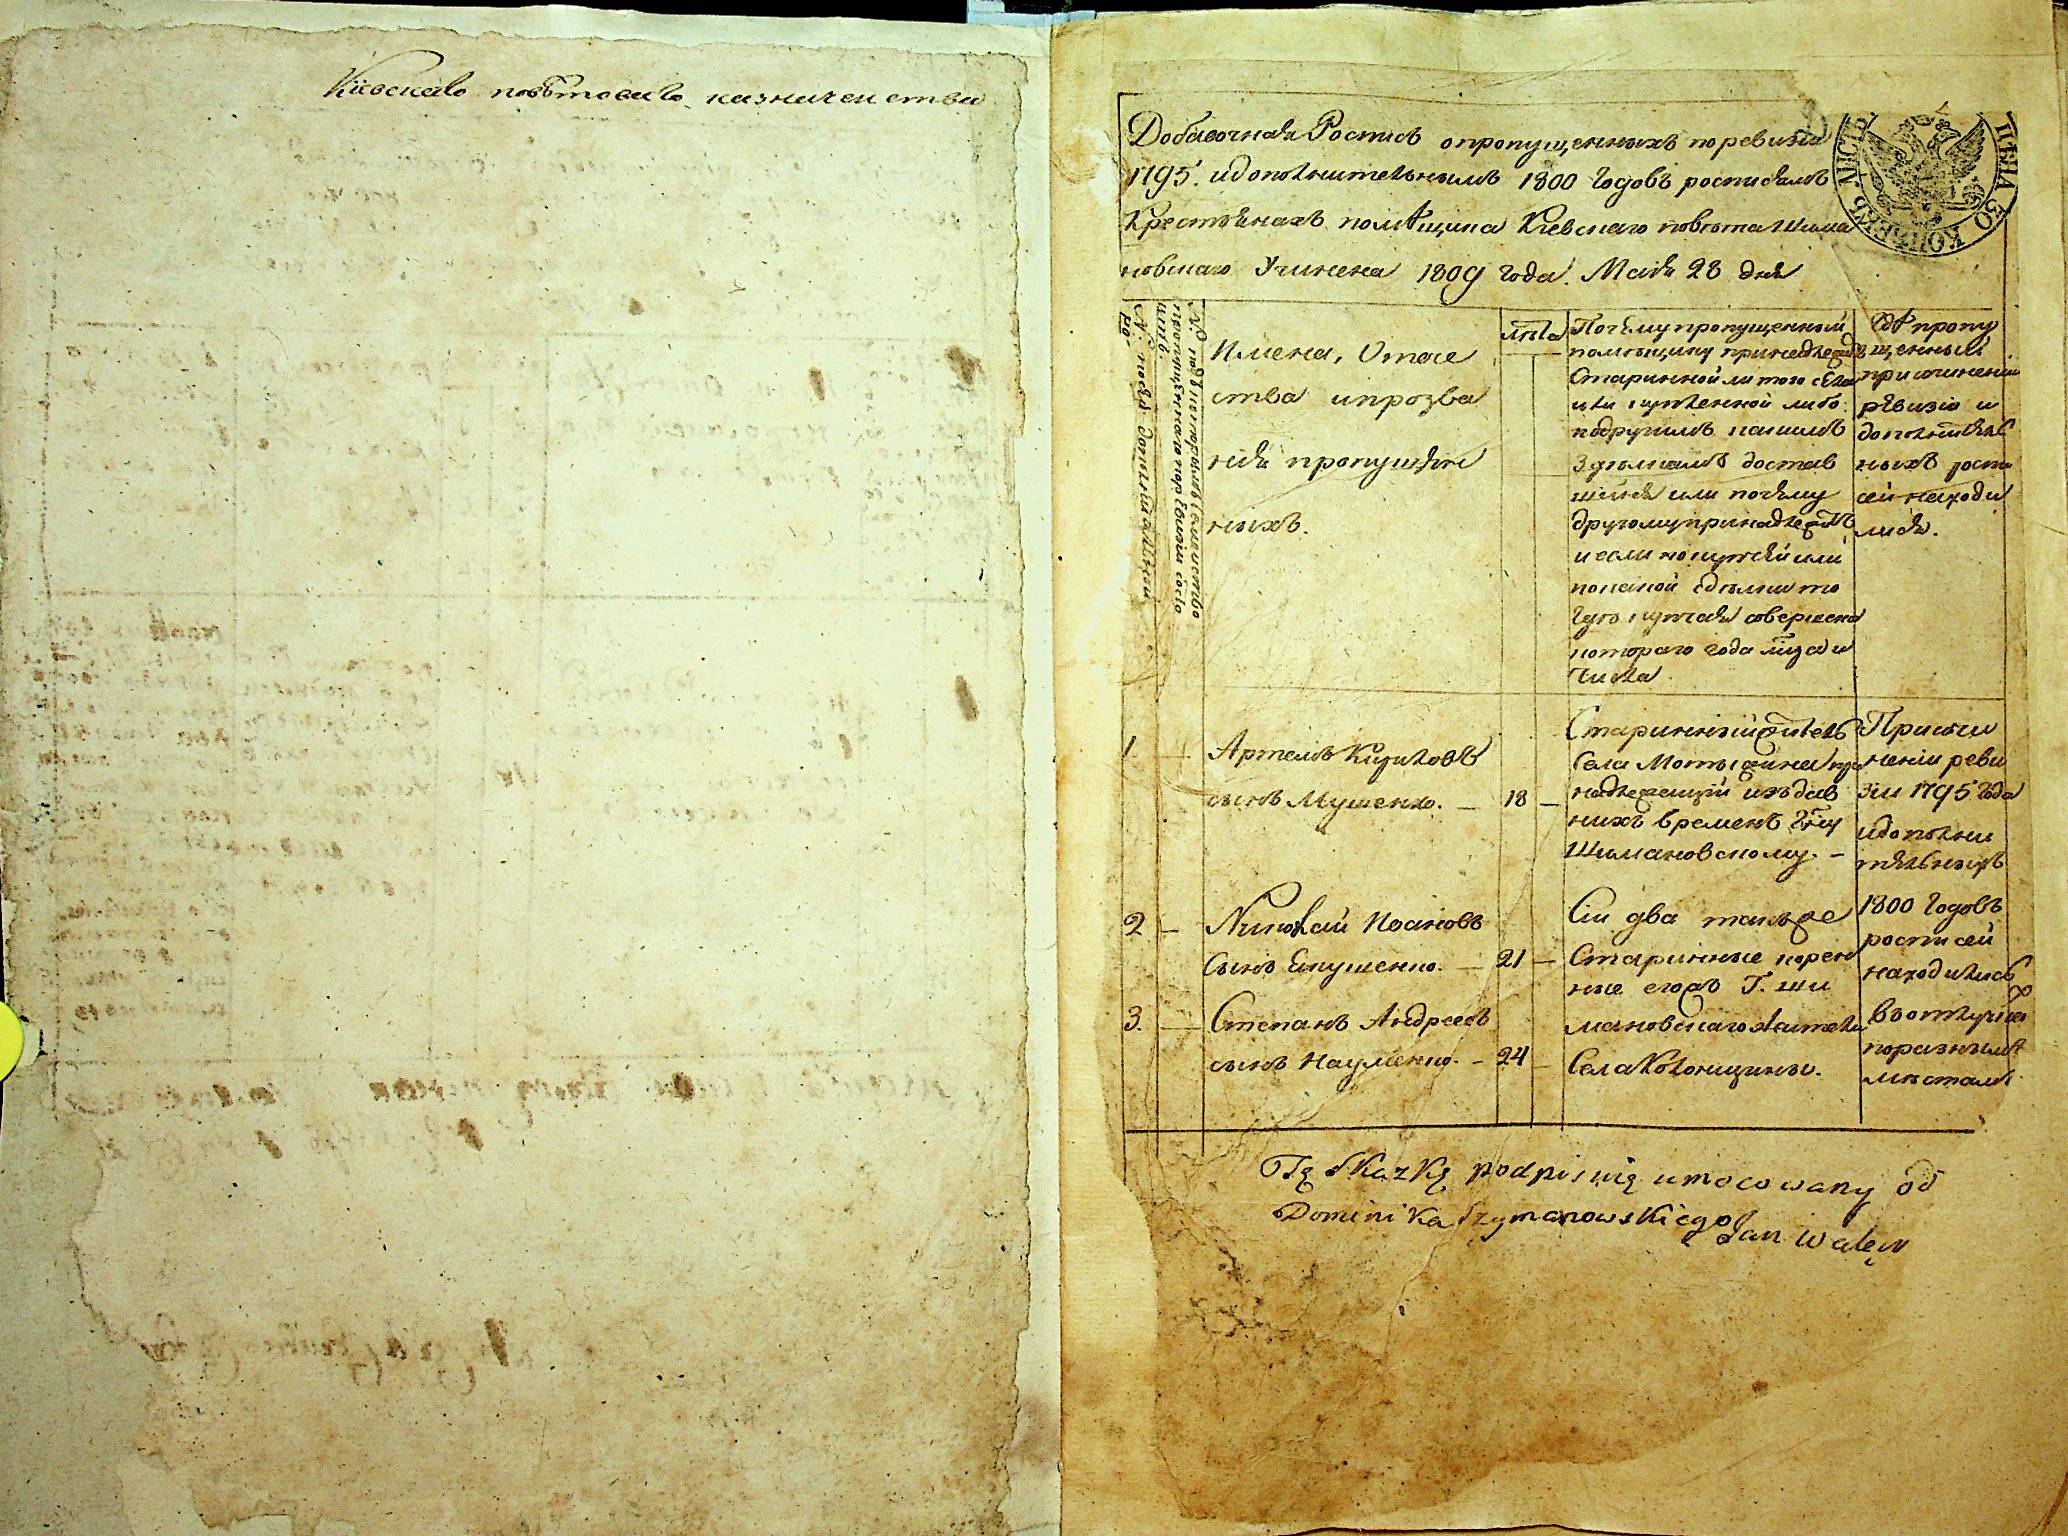 Кіевскаго повѣтоваго казначейства
Добавочная Роспись о пропущенныхъ по ревизіи
1795. и дополнительнымъ 1800 годовъ росписямъ
Крестьянахъ помѣщика Кіевскаго повѣта Шима
новскаго Учинена 1809 года. Маія 28 дня
ЦѢНА 50 КОПѢЕКЪ
Имена, Отече
ства и прозва
нія пропущен
ныхъ.
лѣта
Почему пропущенный
помѣщику принадлежитъ
Старинной ли того села
или купленной либо
по другимъ какимъ
здѣлкамъ достав
шейся или почему
другому принадлежитъ
и если по купчей или
по какой здѣлки то
гдѣ купчая совершена
котораго года мца и
числа
Гдѣ пропу
щенный
при сочиненіи
ревизіи и
дополнитель
ныхъ роспи
сей находи
лися.
1 Артемъ Кириловъ
сынъ Мушенко. — 18 —
Старинный житель
Села Мотыжина при
надлежащій изъ дав
нихъ временъ Гну
Шимановскому. —
При сочи
неніи реви
зіи 1795 года
и дополни
тельныхъ
1800 годовъ
росписей
находились
въ отлучкѣ
по разнымъ
мѣстамъ
2 — Николай Ивановъ
Сынъ Якушенко. — 21 —
Сіи два также
Старинные корен
ные егожъ Г. Ши
мановскаго жители
Села Колонщины.
3. — Степанъ Андреевъ
сынъ Науменко. — 24 —
Tę Skazkę podpisuię umocowany od
Dominika Szymanowskiego Jan Walęw